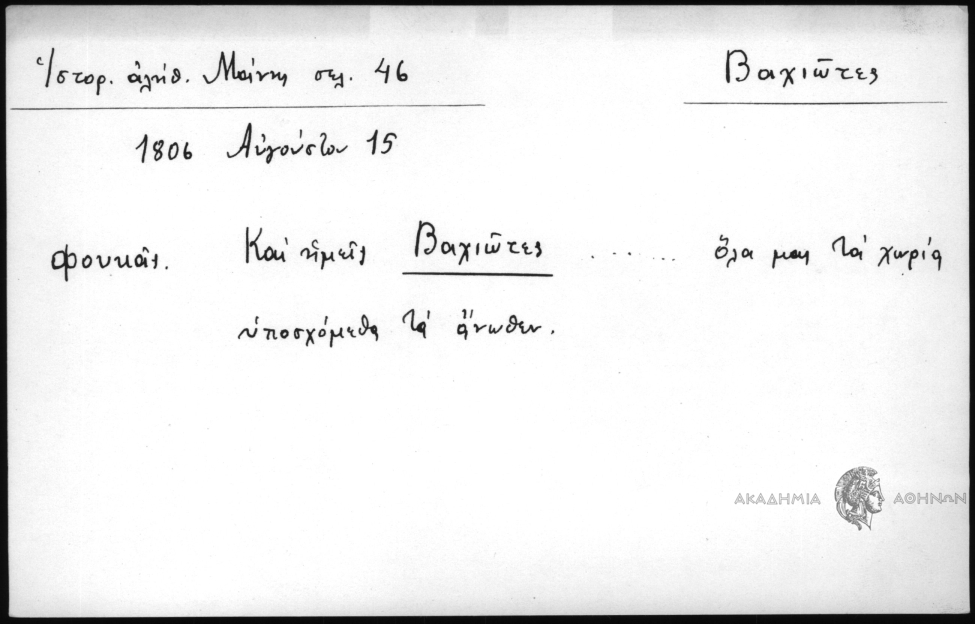 Ἱστορ. ἀλήθ. Μάνης σελ. 46
Βαχιῶτες
1806 Αὐγούστου 15
φουκᾶς. Καὶ ἡμεῖς Βαχιῶτες ........ ὅλα μας τὰ χωρία
ὑποσχόμεθα τὰ ἄνωθεν.
ΑΚΑΔΗΜΙΑ ΑΘΗΝΩΝ